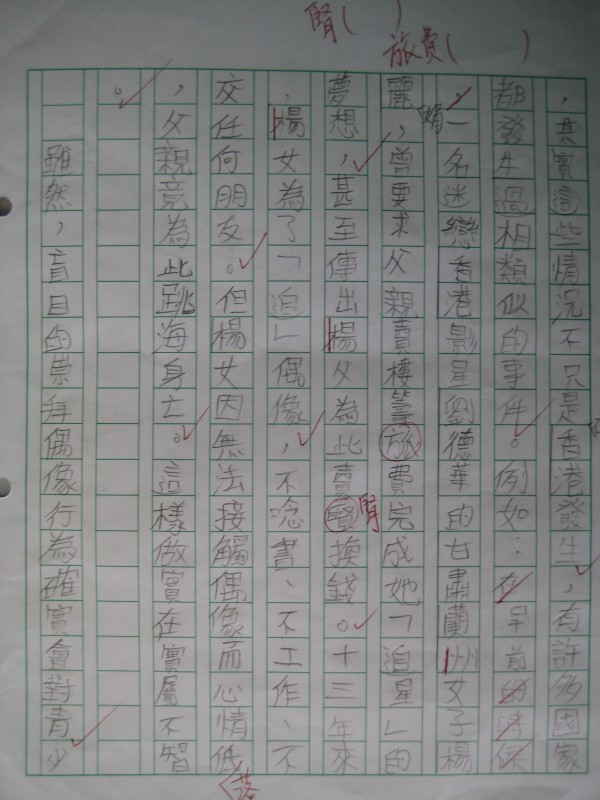 腎( )
旅費( )
，其實這些情況不只是香港發生，有許多國家
都發生過相類似的事件。例如：在早前的時候
，一名迷戀香港影星劉德華的甘肅蘭州女子楊
麗娟，曾要求父親賣樓籌旅費完成她「追星」的
夢想，甚至傳出楊父為此賣腎換錢。十三年來
，楊女為了「追」偶像，不唸書、不工作、不
交任何朋友。但楊女因無法接觸偶像而心情低落
，父親竟為此跳海身亡。這樣做實在實屬不智
。
雖然，盲目的崇拜偶像行為確實會對青少
腎